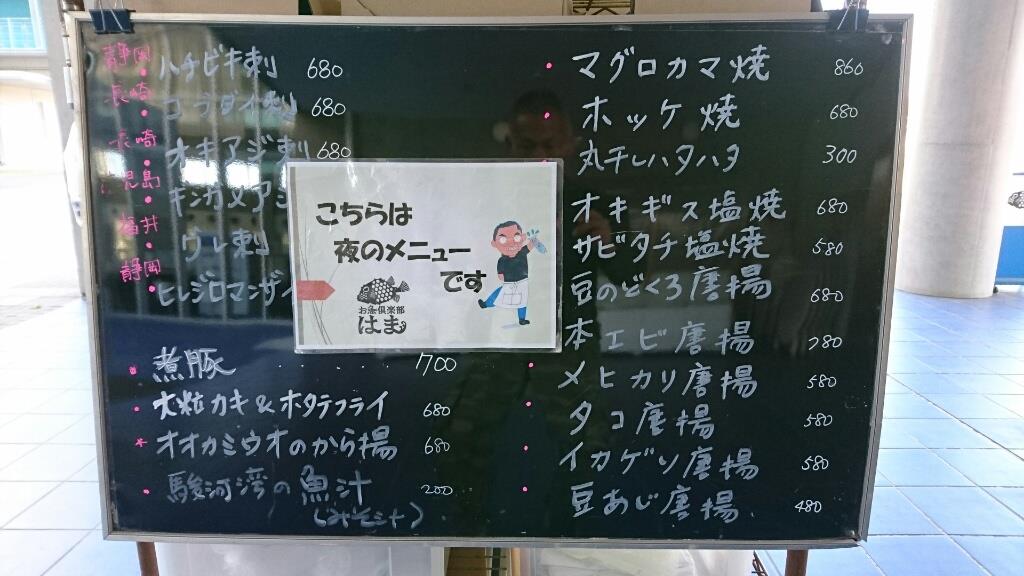 静岡 ハチビキ刺 680
長崎 コラダイ刺 680
長崎 オキアジ刺 680
児島 キンガメアジ
福井 ワレ刺
静岡 ヒレジロマンザイ
煮豚 ..... 700
大粒カキ&ホタテフライ 680
オオカミウオのから揚 680
駿河湾の魚汁 200
(みそ汁)
こちらは
夜のメニュー
です
お魚倶楽部
はま
マグロカマ焼 860
ホッケ焼 680
丸干しハタハタ 300
オキギス塩焼 680
サビタチ塩焼 580
豆のどくろ唐揚 680
本エビ唐揚 780
メヒカリ唐揚 580
タコ唐揚 580
イカゲソ唐揚 580
豆あじ唐揚 480